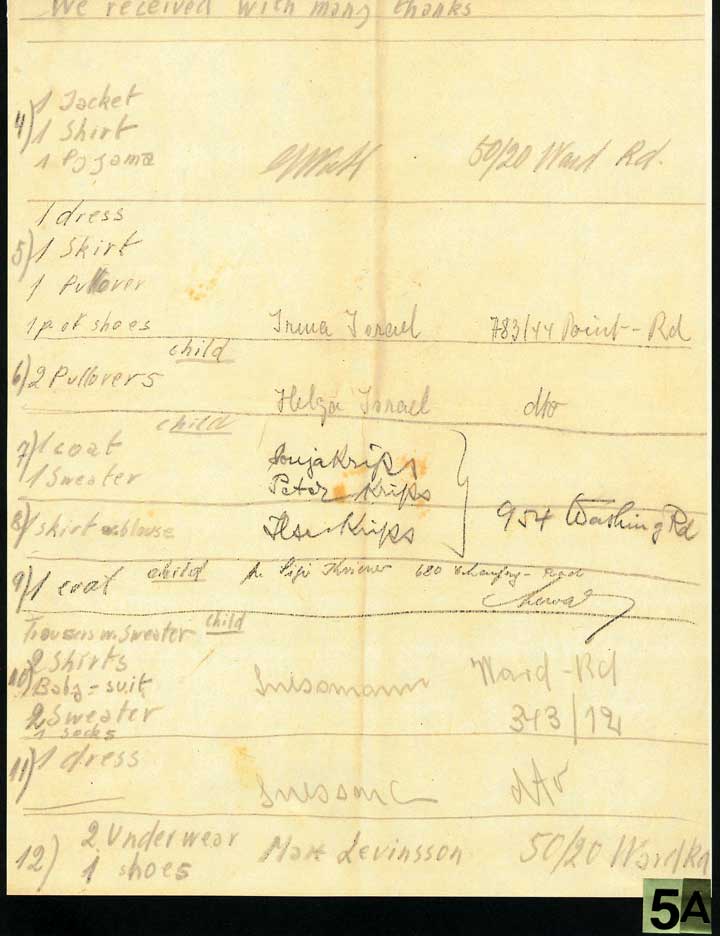 We received with many thanks
1 Jacket
4) 1 Shirt
1 Pyjama 50/20 Ward Rd.
1 dress
5) 1 Skirt
1 Pullover
1 p. of shoes Irma Israel 783/44 Point-Rd
child
6) 2 Pullovers
Helga Israel dto
child
7) 1 coat Sonja Krips
1 Sweater Peter Krips
8) 1 skirt blouse Ilse Krips 954 Washing Rd
9) 1 coat child 680 Road
Trousers m. Sweater child
2 Shirts
10) Baby-suit Suessmann Ward-Rd
2 Sweater 343/12
1 socks
11) 1 dress
dto
2 Underwear
12) 1 shoes Max Levinsson 50/20 Ward Rd
5A